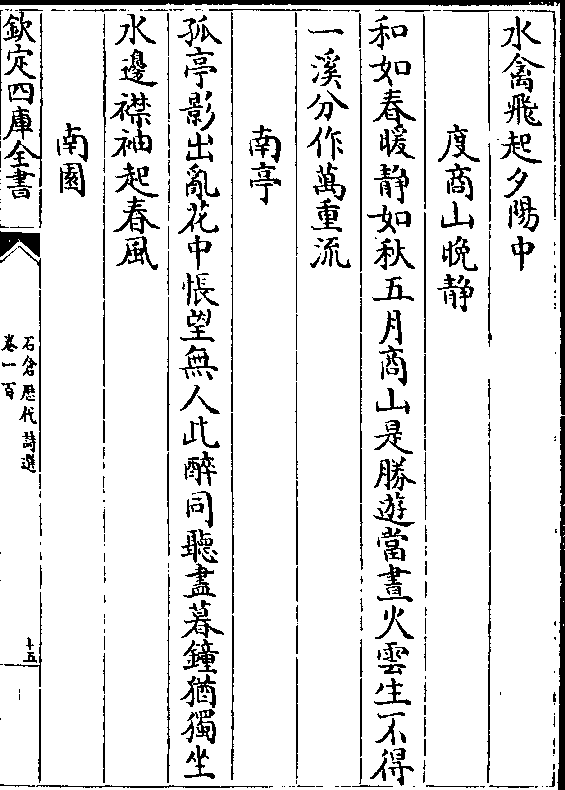 水禽飛起夕陽中
度商山晚靜
和如春暖靜如秋五月商山是勝遊當晝火雲生不得
一溪分作萬重流
南亭
孤亭影出亂花中悵望無人此醉同聽盡暮鐘猶獨坐
水邊襟袖起春風
南園
欽定四庫全書
石倉歷代詩選
卷一百
十五